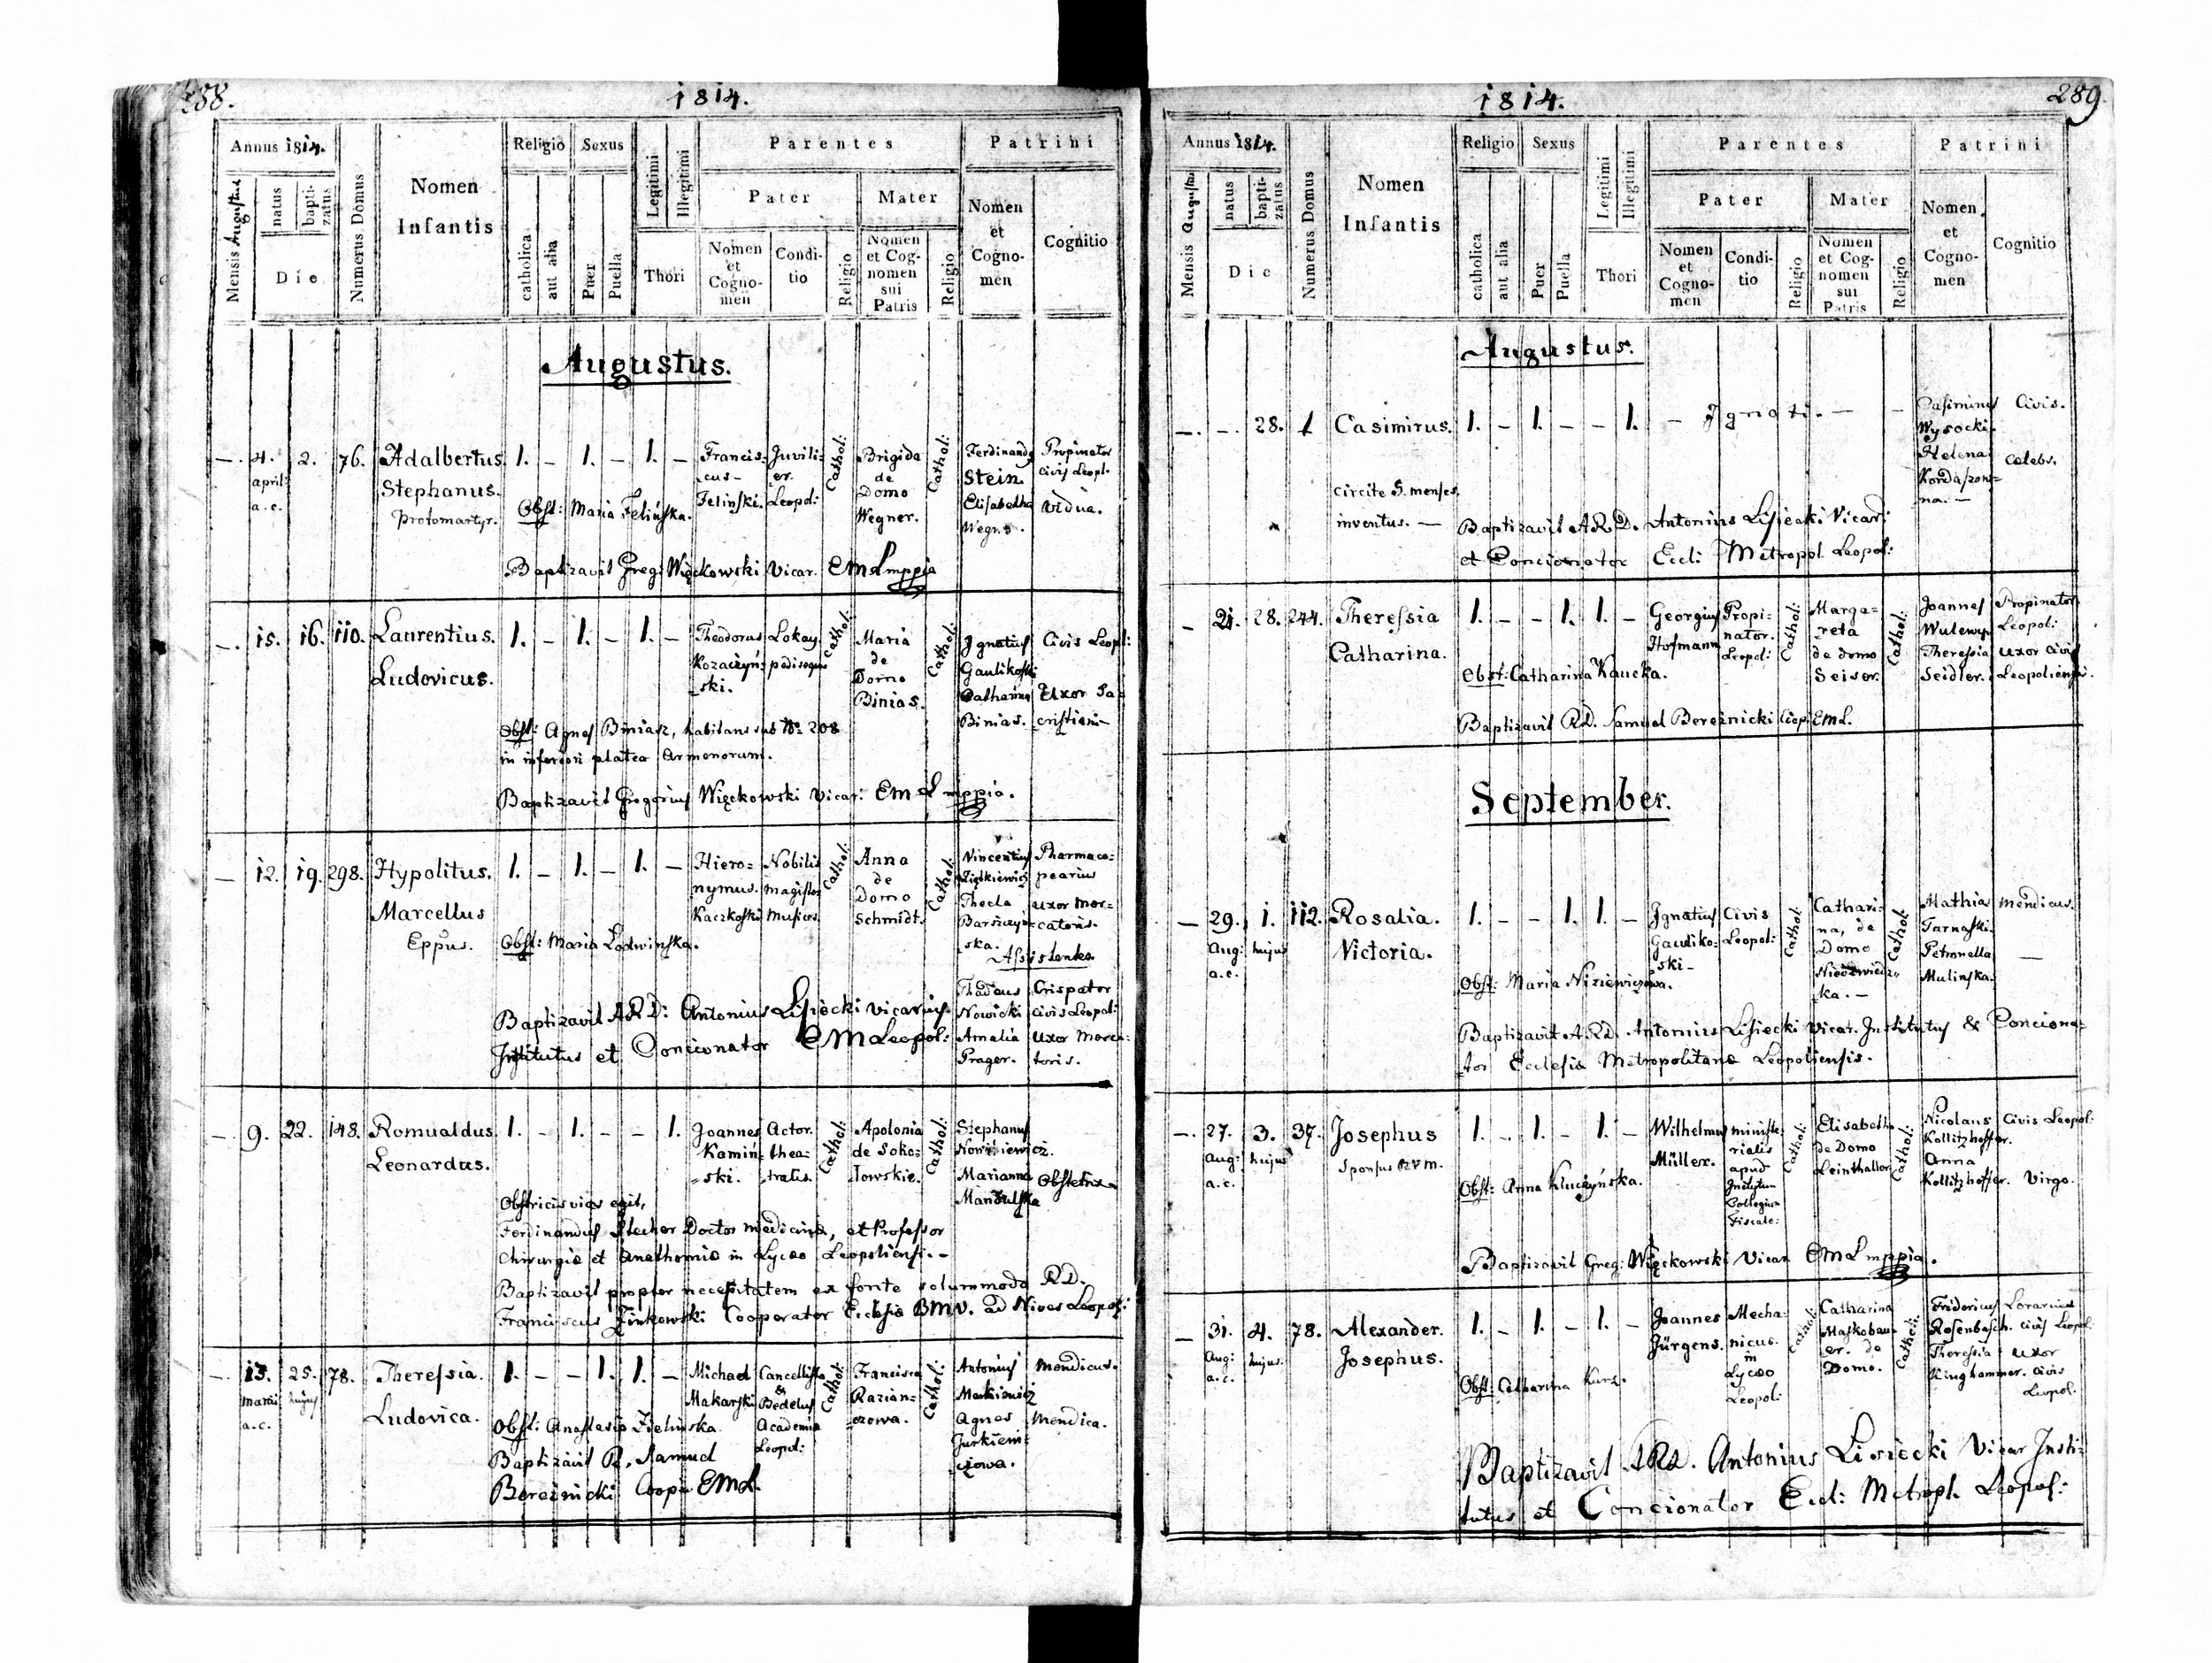 288.
1814.
Annus 1814.
Mensis Augustus
natus
bapti-
zatus
Die
Numerus Domus
Nomen
Infantis
Religio
catholica
aut alia
Sexus
Puer
Puella
Legitimi
Illegitimi
Thori
Parentes
Pater
Nomen
et
Cogno-
men
Condi-
tio
Religio
Mater
Nomen
et Cog-
nomen
sui
Patris
Religio
Patrini
Nomen
et
Cogno-
men
Cognitio
Augustus.
—. 4. 2. 76. Adalbertus 1. – 1. – 1. –
april:
a. c.
Stephanus.
Protomartyr.
Francis-
cus –
Felinski.
Juvili-
er.
Leopol:
Cathol:
Brigida
de
Domo
Wegner.
Cathol:
Ferdinandus
Stein.
Elisabetha
Propinator
Civis Leopl.
vidua.
Obst: Maria Felińska.
Baptizavit Greg: Więckowski Vicar. EML mppia
—. 15. 16. 110. Laurentius. 1. – 1. – 1. –
Ludovicus.
Theodorus
Kozaczyń-
ski.
Lokay
pedisequus
Cathol:
Maria
de
Domo
Binias.
Cathol:
Ignatius
Gaulikoski
Catharina
Binias.
Civis Leopol:
Uxor Sa-
cristiani –
Obst: Agnes Biniasz, habitans sub No 208
in inferiori platea Armenorum.
Baptizavit Gregorius Więckowski Vicar: EML mppia.
— 12. 19. 298. Hypolitus. 1. – 1. – 1. –
Marcellus
Eppus.
Hiero-
nymus.
Kaczkoski
Nobilis
magister
Musices.
Cathol:
Anna
de
Domo
Schmidt.
Cathol:
Vincentius
Thecla
ska.
Pharmaco-
pearius
uxor mer-
catoris.
Assistentes
Thadeus
Nowicki
Amalia
Prager.
Crispator
Civis Leopol:
Uxor merca-
toris.
Obst: Maria Lodwinska.
Baptizavit ARD: Antonius Lisiecki vicarius
Institutus et Concionator EMLeopol:
—. 9. 22. 148. Romualdus 1. – 1. – – 1.
Leonardus.
Joannes
Kamiń-
ski.
Actor.
thea-
tralis
Cathol:
Apolonia
de Soko-
lowskie.
Cathol:
Stephanus
Marianna
Obstetrix
Obstricis vices egit,
Ferdinandus Stecher Doctor medicinæ, et Professor
Chirurgiæ et Anathomiæ in Lyceo Leopoliensi. –
Baptizavit propter necessitatem ex fonte solummodo RD.
Franciscus Zinkowski Cooperator Ecclesiæ BMV. ad Nives Leopol:
—. 13. 25. 78. Theressia. 1. – – 1. 1. –
martii
a. c.
hujus
Ludovica.
Michael
Makarski
Cancellista
&
Bedelus
Academiæ
Leopol:
Cathol:
Francisca
Razian-
czowa.
Cathol:
Antonius
Markiewicz
Agnes
Jurkiewi-
czowa.
Mendicus.
Mendica.
Obst: Anastasia Zielinska
Baptizavit R. Samuel
Bereznicki Coop: EML.
1814.
289.
Annus 1814.
Mensis Augustus
natus
bapti-
zatus
Die
Numerus Domus
Nomen
Infantis
Religio
catholica
aut alia
Sexus
Puer
Puella
Legitimi
Illegitimi
Thori
Parentes
Pater
Nomen
et
Cogno-
men
Condi-
tio
Religio
Mater
Nomen
et Cog-
nomen
sui
Patris
Religio
Patrini
Nomen
et
Cogno-
men
Cognitio
Augustus.
—. –. 28. 1 Casimirus. 1. – 1. – – 1. – Ignoti. – –
circite 5. menses
inventus. —
Casimirus
Wysocki.
Helena
na. —
Civis.
Celebs.
Baptizavit ARD. Antonius Lisiecki Vicar:
et Concionator Eccl: Metropol. Leopol:
– 21. 28. 244. Theressia 1. – – 1. 1. –
Catharina.
Georgius
Hofmann
Propi-
nator.
Leopol:
Cathol:
Marga-
reta
de domo
Seiser.
Cathol:
Joannes
Theressia
Seidler.
Propinator
Leopol:
uxor civis
Leopoliensis.
Obst: Catharina Kaucka.
Baptizavit RD. Samuel Bereznicki Coop: EML.
September.
— 29. 1. 112. Rosalia. 1. – – 1. 1. –
Aug:
a. c.
hujus
Victoria.
Ignatius
Gauliko-
ski –
Civis
Leopol:
Cathol:
Cathari-
na, de
Domo
Niedzwiedz-
ka. –
Cathol:
Mathias
Tarnaski.
Petronella
Mulinska.
Mendicus.
—
Obst: Maria Niziewiczowa.
Baptizavit ARD. Antonius Lisiecki Vicar. Institutus & Conciona-
tor Ecclesiæ Metropolitanæ Leopoliensis.
—. 27. 3. 37. Josephus 1. – 1. – 1. –
Aug:
a. c.
hujus
Sponsus BVM.
Wilhelmus
Müller.
ministe-
rialis
apud
Fiscale:
Cathol:
Elisabetha
de Domo
Leinthaller
Cathol:
Nicolaus
Kollitzhoffer.
Anna
Kollitzhoffer.
Civis Leopol:
Virgo.
Obst: Anna Kluczyńska.
Baptizavit Greg: Więckowski Vicar EML mppia.
— 31. 4. 78. Alexander. 1. – 1. – 1. –
Aug:
a. c.
hujus
Josephus.
Joannes
Jürgens.
Mecha-
nicus.
in
Lyceo
Leopol:
Cathol:
Catharina
Maskobau-
er. de
Domo.
Cathol:
Fridericus
Rosenbasch.
Theressia
Kinghammer.
Lorarius
civis Leopol:
uxor
civis
Leopol:
Obst: Catharina Kurz.
Baptizavit ARD. Antonius Lisiecki Vicar Insti-
tutus et Concionator Eccl: Metropl. Leopol: